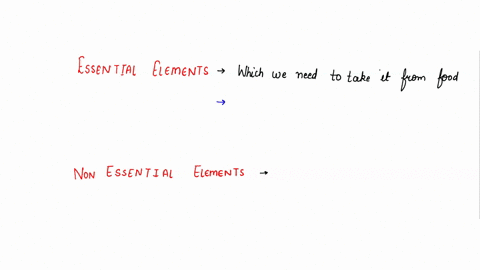 ESSENTIAL ELEMENTS → Which we need to take it from food
→
NON ESSENTIAL ELEMENTS →